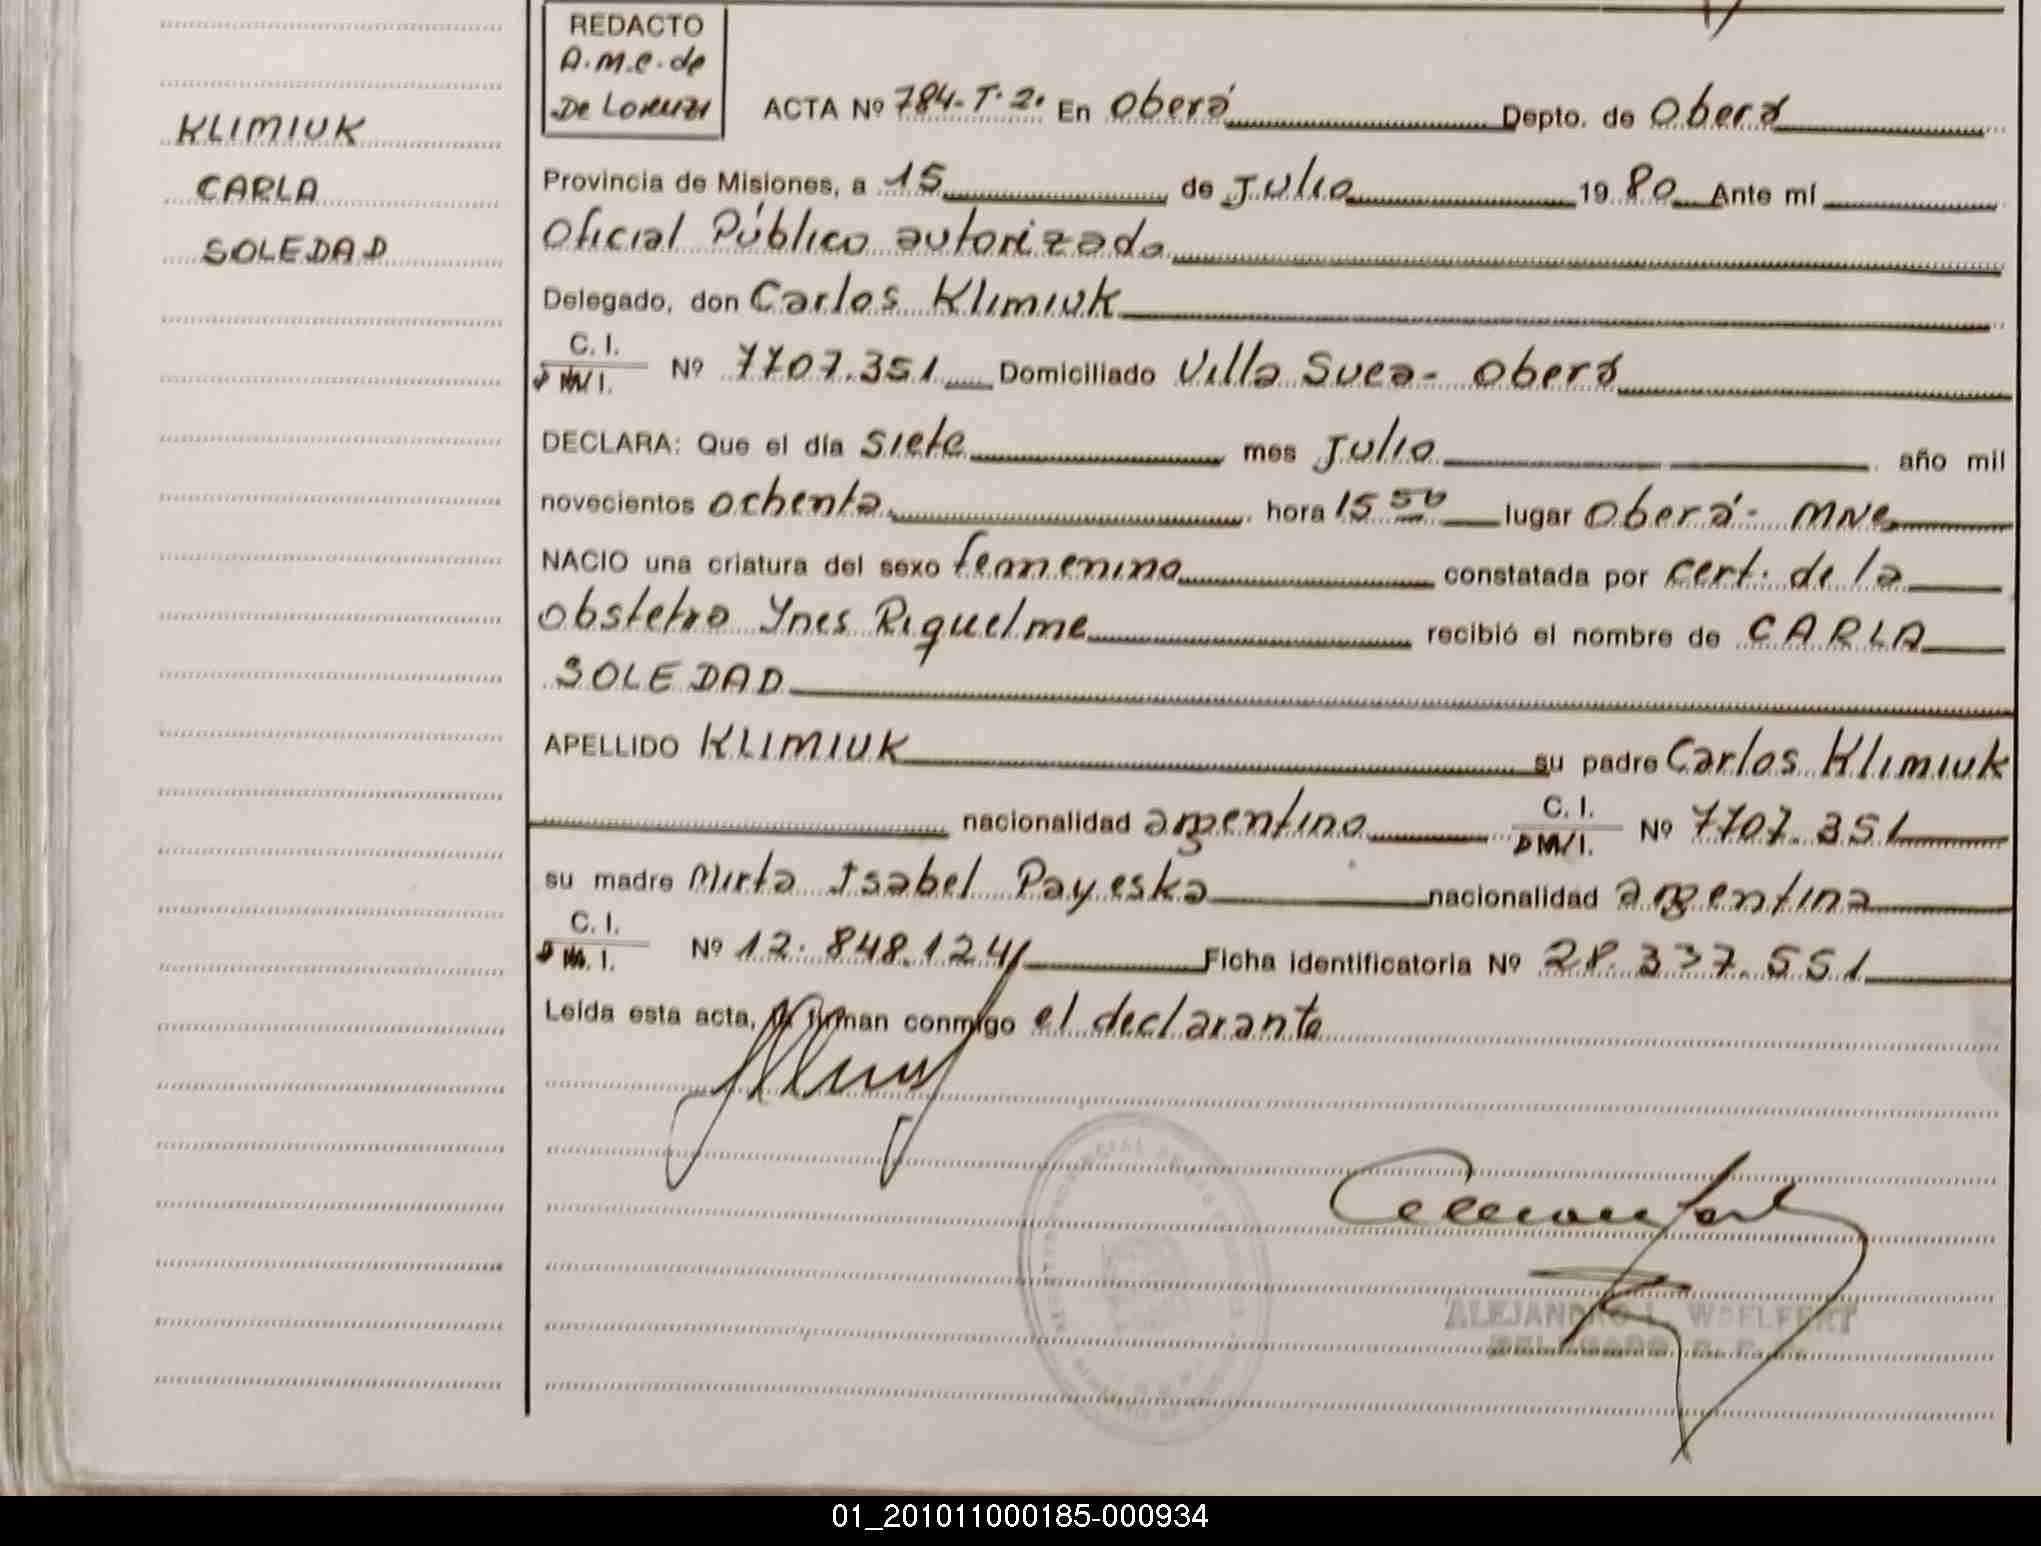 REDACTO
A.M.C. de
De Lorenzi
KLIMIUK
CARLA
SOLEDAD
ACTA Nº 784-T.2. En Oberá Depto. de Oberá
Provincia de Misiones, a 15 de Julio 19 80 Ante mí
Oficial Público autorizado
Delegado, don Carlos Klimiuk
C. I.
M. I. Nº 7707.351 Domiciliado Villa Svea - Oberá
DECLARA: Que el día siete mes Julio año mil
novecientos ochenta hora 15 50 lugar Oberá - Mnes
NACIO una criatura del sexo femenino constatada por cert. de la
obstetra Ynes Riquelme recibió el nombre de CARLA
SOLEDAD
APELLIDO KLIMIUK su padre Carlos Klimiuk
nacionalidad argentino C. I.
D M/I. Nº 7707.351
su madre Mirta Isabel Payeska nacionalidad argentina
C. I.
M. I. Nº 12.848.124 Ficha identificatoria Nº 28.337.551
Leída esta acta, la firman conmigo el declarante
ALEJANDRO L. WOELFERT
DELEGADO
01_201011000185-000934